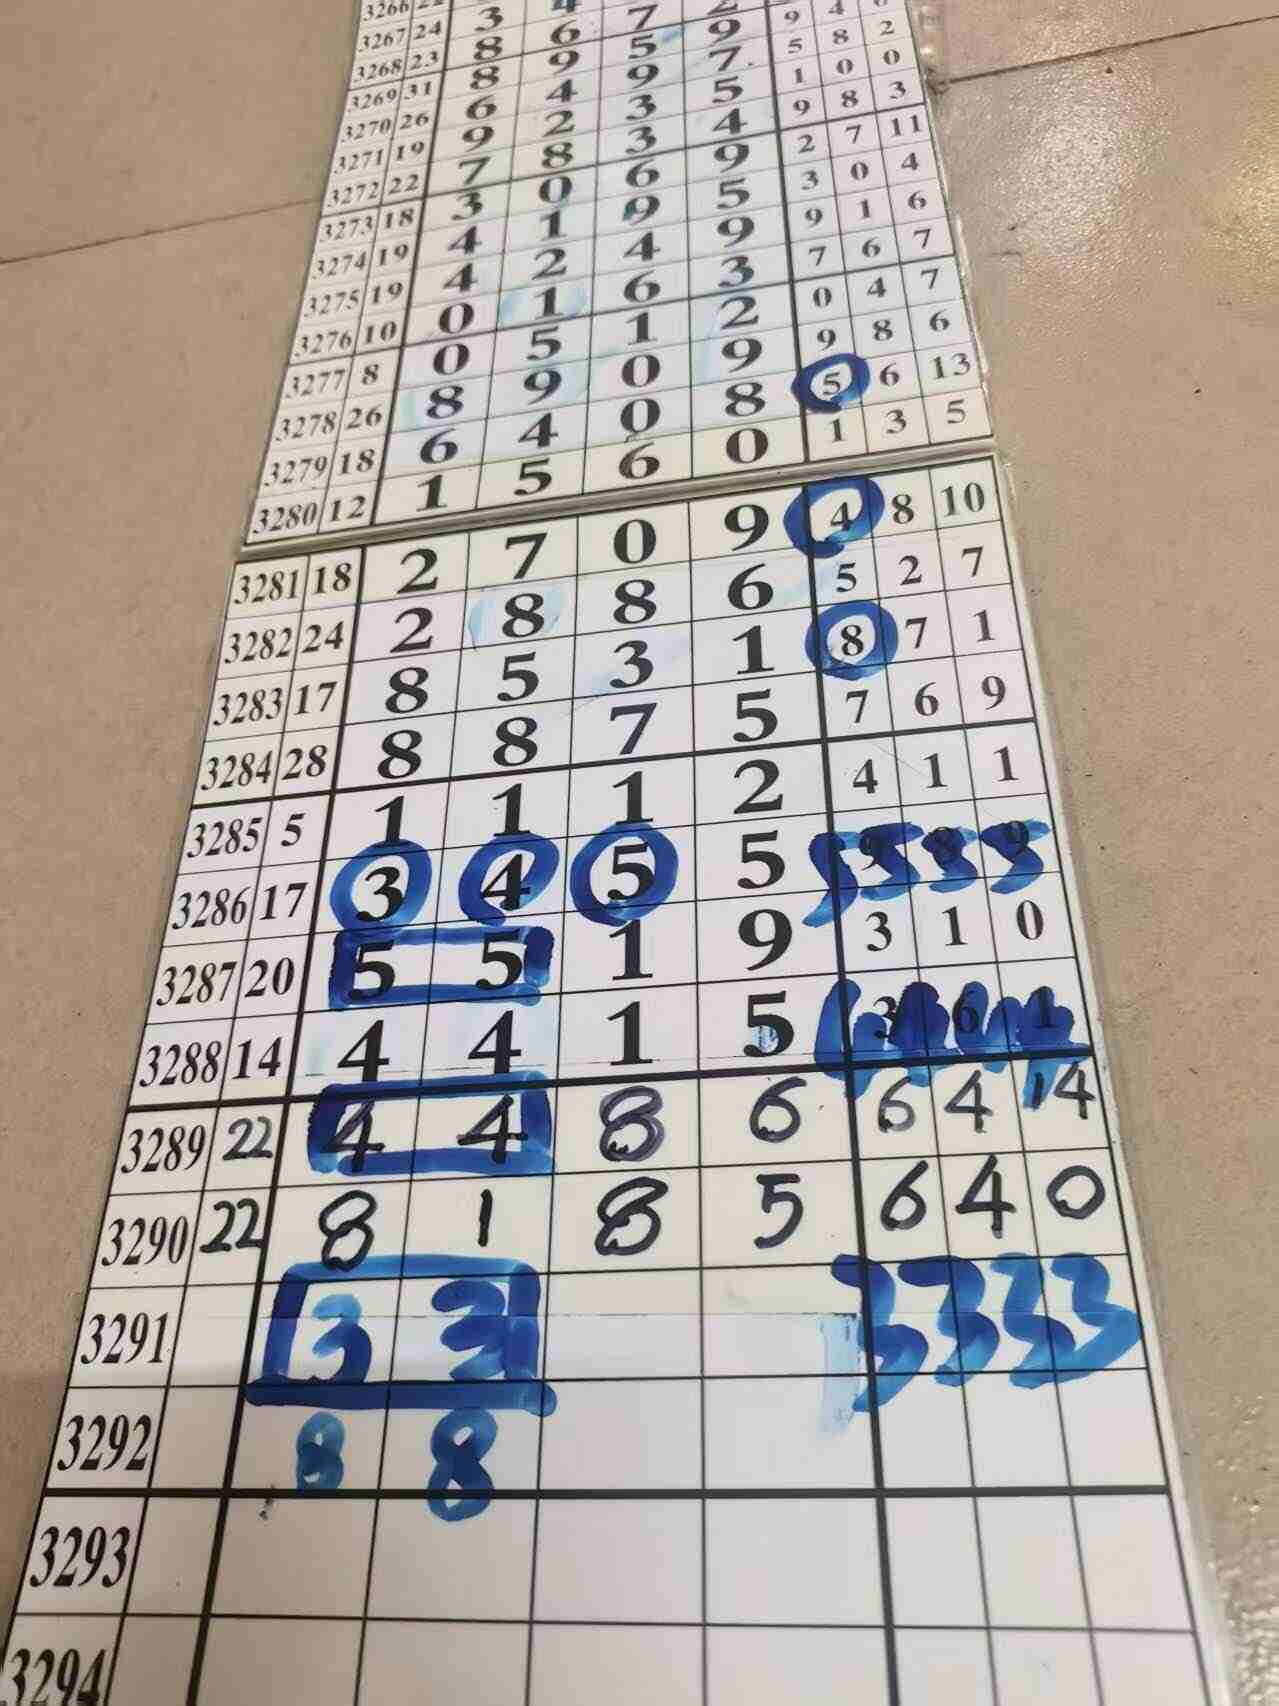 3266 22 4 7 2
3267 24 3 6 5 9 9 4 0
3268 23 8 9 9 7 5 8 2
3269 31 8 4 3 5 1 0 0
3270 26 6 2 3 4 9 8 3
3271 19 9 8 6 9 2 7 11
3272 22 7 0 9 5 3 0 4
3273 18 3 1 4 9 9 1 6
3274 19 4 2 6 3 7 6 7
3275 19 4 1 1 2 0 4 7
3276 10 0 5 0 9 9 8 6
3277 8 0 9 0 8 5 6 13
3278 26 8 4 6 0 1 3 5
3279 18 6 5
3280 12 1
3281 18 2 7 0 9 4 8 10
3282 24 2 8 8 6 5 2 7
3283 17 8 5 3 1 8 7 1
3284 28 8 8 7 5 7 6 9
3285 5 1 1 1 2 4 1 1
3286 17 3 4 5 5 9 8 9
5 5 5 5
3287 20 5 5 1 9 3 1 0
3288 14 4 4 1 5 3 6 1
3289 22 4 4 8 6 6 4 14
3290 22 8 1 8 5 6 4 0
3291 3 3 3 3 3 3
3292 8 8
3293
3294